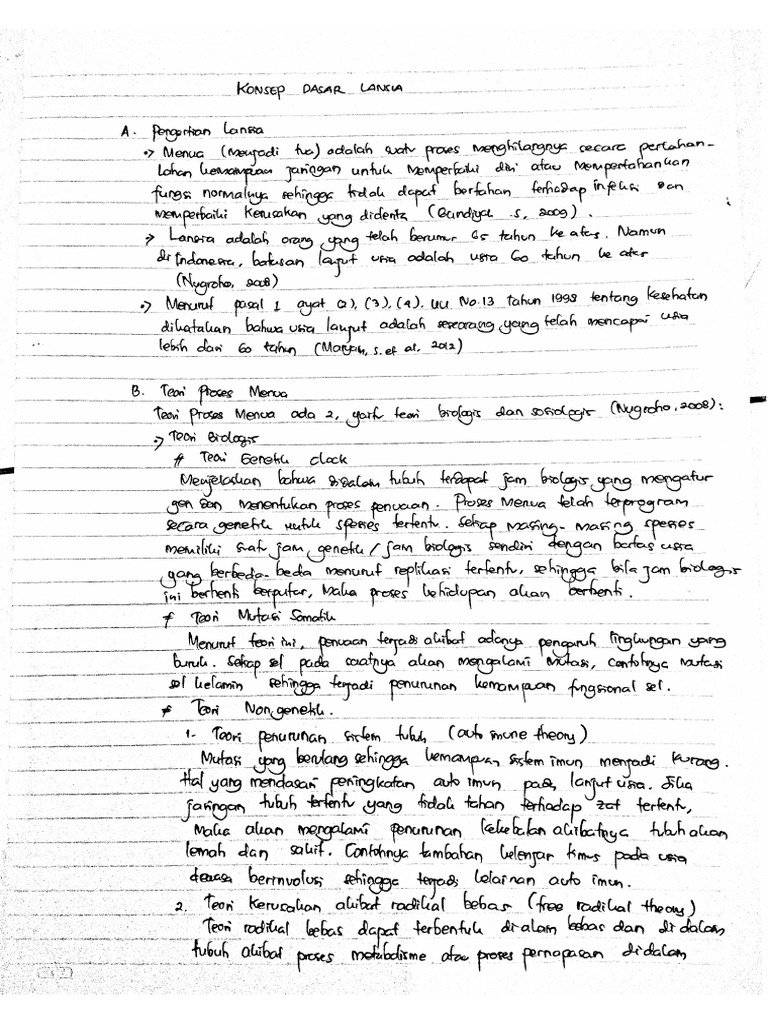 KONSEP DASAR LANSIA
A. Pengertian Lansia
•> Menua (menjadi tua) adalah suatu proses menghilangnya secara perlahan-
lahan kemampuan jaringan untuk memperbaiki diri atau mempertahankan
fungsi normalnya sehingga tidak dapat bertahan terhadap infeksi dan
memperbaiki kerusakan yang diderita (Sundiya .S, 2009).
> Lansia adalah orang yang telah berumur 65 tahun ke atas. Namun
di Indonesia, batasan lanjut usia adalah usia 60 tahun ke atas
(Nugroho, 2008)
•> Menurut pasal 1 ayat (2), (3), (4). UU No.13 tahun 1998 tentang kesehatan
dikatakan bahwa usia lanjut adalah seseorang yang telah mencapai usia
lebih dari 60 tahun (Maryam, S. et al, 2012)
B. Teori Proses Menua
Teori Proses Menua ada 2, yaitu teori biologis dan sosiologis (Nugroho, 2008):
•> Teori Biologis
* Teori Genetik clock
Menjelaskan bahwa didalam tubuh terdapat jam biologis yang mengatur
gen dan menentukan proses penuaan. Proses Menua telah terprogram
secara genetik untuk spesies tertentu. Setiap masing-masing spesies
memiliki suatu jam genetik / jam biologis sendiri dengan batas usia
yang berbeda-beda menurut replikasi tertentu, sehingga bila jam biologis
ini berhenti berputar, maka proses kehidupan akan berhenti.
* Teori Mutasi Somatik
Menurut teori ini, penuaan terjadi akibat adanya pengaruh lingkungan yang
buruk. Setiap sel pada saatnya akan mengalami mutasi, contohnya mutasi
sel kelamin sehingga terjadi penurunan kemampuan fungsional sel.
* Teori Nongenetik.
1. Teori penurunan sistem tubuh (auto imune theory)
Mutasi yang berulang sehingga kemampuan sistem imun menjadi kurang.
Hal yang mendasari peningkatan auto imun pada lanjut usia. Jika
jaringan tubuh tertentu yang tidak tahan terhadap zat tertentu,
Maka akan mengalami penurunan kekebalan akibatnya tubuh akan
lemah dan sakit. Contohnya tambahan kelenjar timus pada usia
dewasa berinvolusi sehingga terjadi kelainan auto imun.
2. Teori kerusakan akibat radikal bebas (free radikal theory)
Teori radikal bebas dapat terbentuk di alam bebas dan di dalam
tubuh akibat proses metabolisme atau proses pernapasan didalam